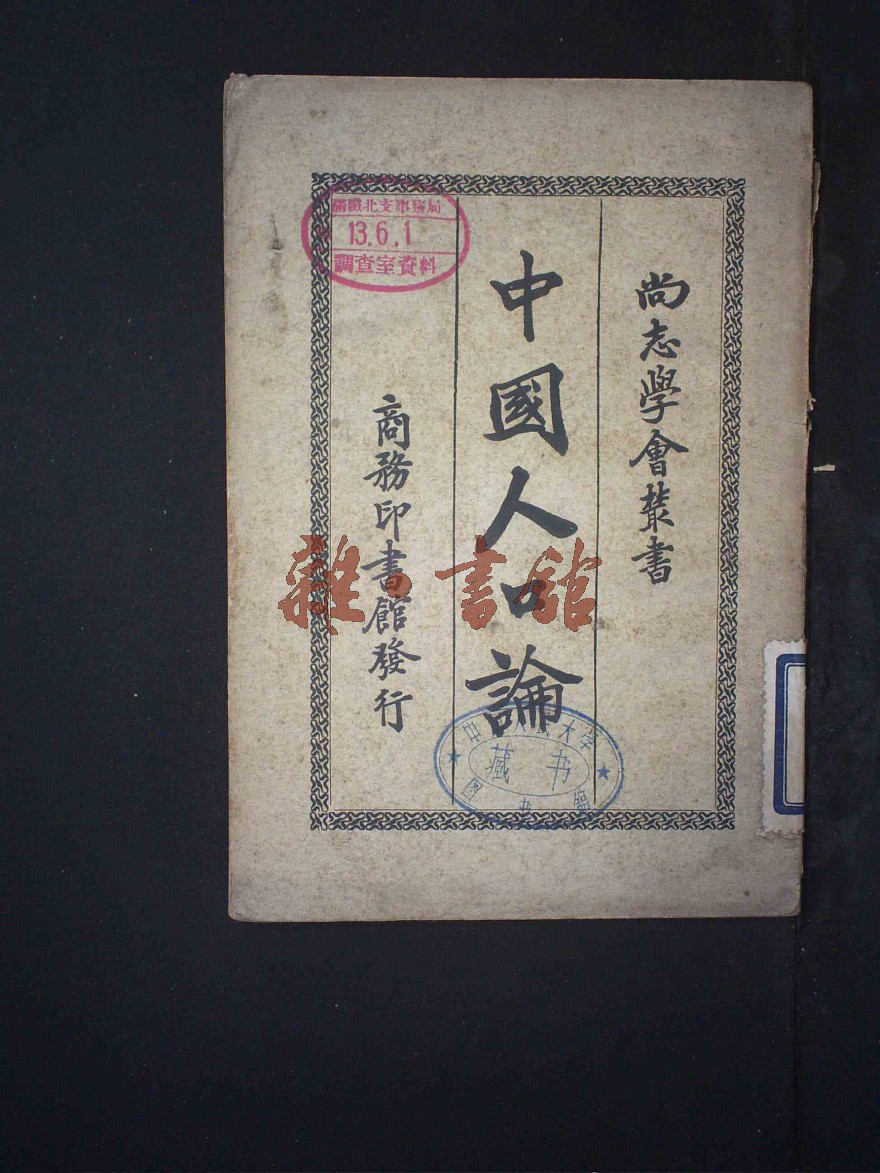 尚志學會叢書
中國人口論
商務印書館發行
滿鐵北支事務局
13.6.1
調查室資料
雜書館
大学
藏书